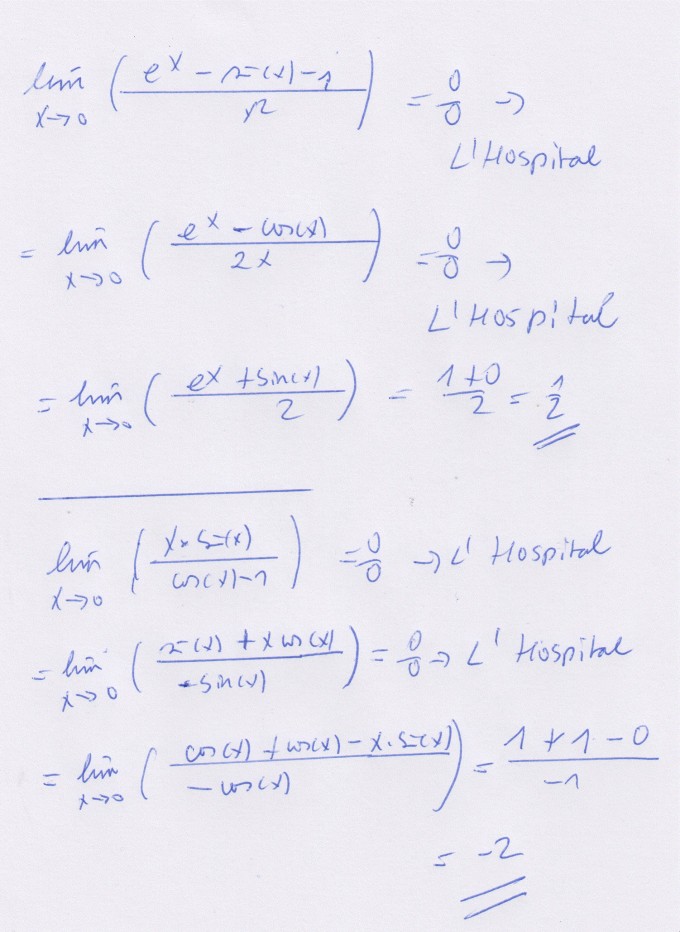 lim x→0 ( (e^x − sin(x) − 1) / x² ) = 0/0 →
L'Hospital
= lim x→0 ( (e^x − cos(x)) / 2x ) = 0/0 →
L'Hospital
= lim x→0 ( (e^x + sin(x)) / 2 ) = (1+0)/2 = 1/2
lim x→0 ( (x · sin(x)) / (cos(x) − 1) ) = 0/0 → L' Hospital
= lim x→0 ( (sin(x) + x cos(x)) / (−sin(x)) ) = 0/0 → L' Hospital
= lim x→0 ( (cos(x) + cos(x) − x · sin(x)) / (−cos(x)) ) = (1 + 1 − 0) / −1
= −2